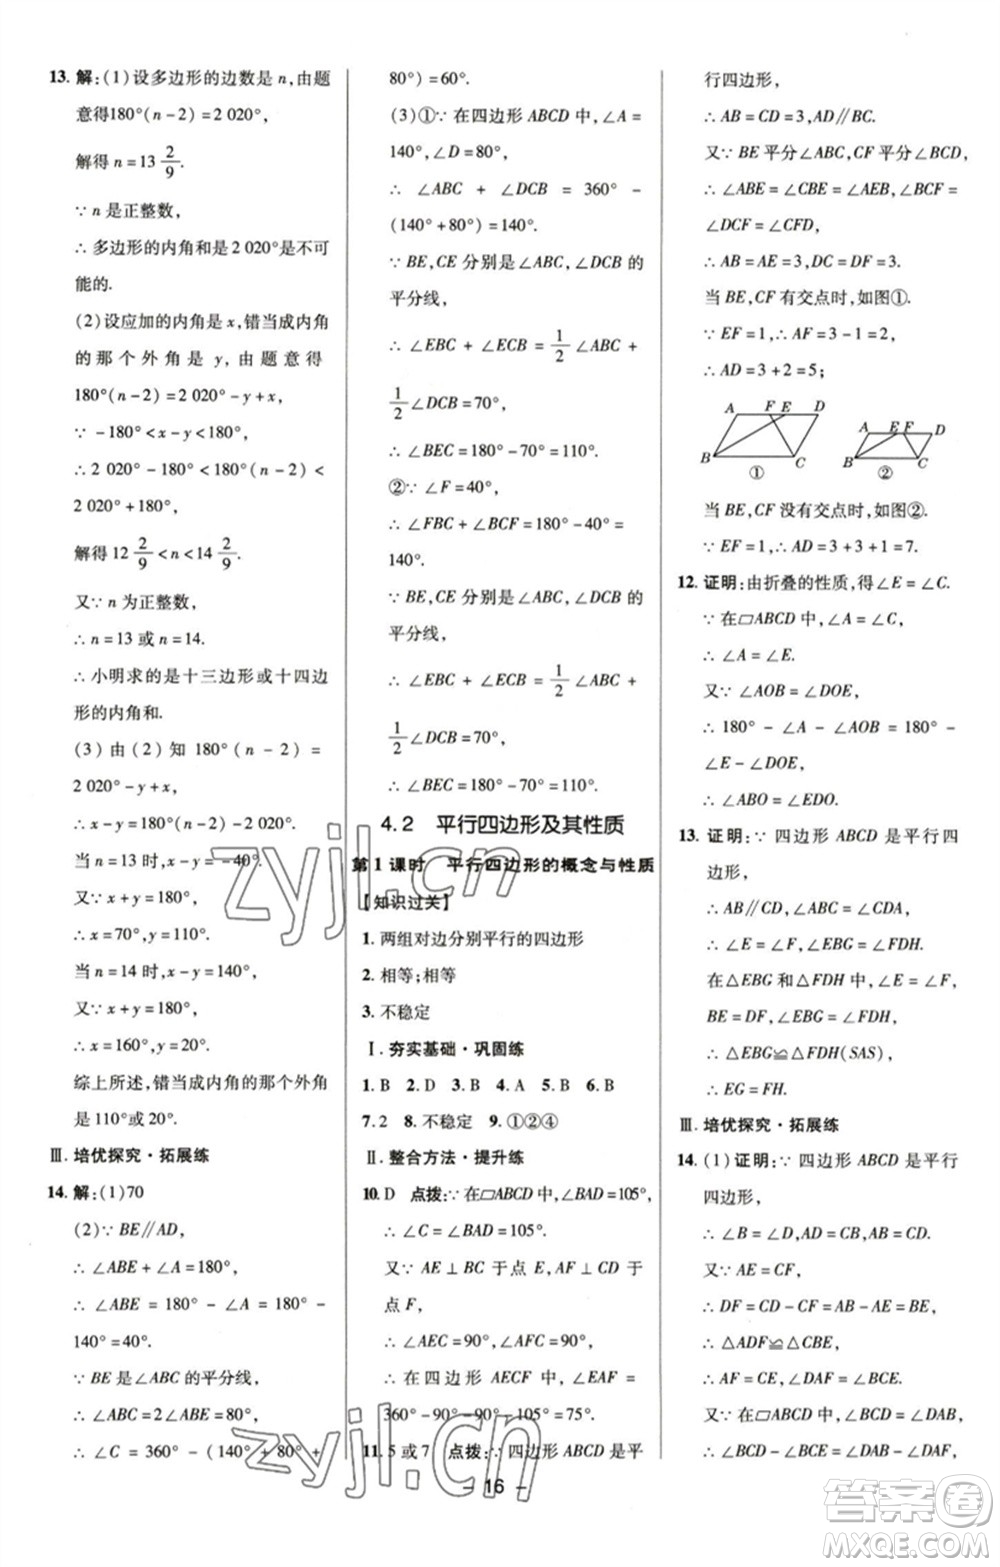 13. 解:(1)设多边形的边数是 n,由题
意得180°(n－2)＝2 020°,
解得 n＝13 2/9.
∵ n 是正整数,
∴ 多边形的内角和是 2 020°是不可
能的.
(2)设应加的内角是 x,错当成内角
的那个外角是 y, 由题意得
180°(n－2)＝2 020°－y＋x,
∵ －180°<x－y<180°,
∴ 2 020°－180°<180°(n－2)<
2 020°＋180°,
解得 12 2/9<n<14 2/9.
又∵ n 为正整数,
∴ n＝13 或 n＝14.
∴ 小明求的是十三边形或十四边
形的内角和.
(3) 由 (2) 知 180°(n－2)＝
2 020°－y＋x,
∴ x－y＝180°(n－2)－2 020°.
当 n＝13 时,x－y＝－40°.
又∵ x＋y＝180°,
∴ x＝70°,y＝110°.
当 n＝14 时,x－y＝140°,
又∵ x＋y＝180°,
∴ x＝160°,y＝20°.
综上所述,错当成内角的那个外角
是 110°或 20°.
Ⅲ. 培优探究·拓展练
14. 解:(1)70
(2)∵ BE∥AD,
∴ ∠ABE＋∠A＝180°,
∴ ∠ABE＝180°－∠A＝180°－
140°＝40°.
∵ BE 是∠ABC 的平分线,
∴ ∠ABC＝2∠ABE＝80°,
∴ ∠C＝360°－(140°＋80°＋
80°)＝60°.
(3)①∵ 在四边形 ABCD 中,∠A＝
140°,∠D＝80°,
∴ ∠ABC＋∠DCB＝360°－
(140°＋80°)＝140°.
∵ BE,CE 分别是∠ABC,∠DCB 的
平分线,
∴ ∠EBC＋∠ECB＝1/2∠ABC＋
1/2∠DCB＝70°,
∴ ∠BEC＝180°－70°＝110°.
②∵ ∠F＝40°,
∴ ∠FBC＋∠BCF＝180°－40°＝
140°.
∵ BE,CE 分别是∠ABC,∠DCB 的
平分线,
∴ ∠EBC＋∠ECB＝1/2∠ABC＋
1/2∠DCB＝70°,
∴ ∠BEC＝180°－70°＝110°.
4.2 平行四边形及其性质
第 1 课时 平行四边形的概念与性质
【知识过关】
1. 两组对边分别平行的四边形
2. 相等;相等
3. 不稳定
Ⅰ. 夯实基础·巩固练
1. B 2. D 3. B 4. A 5. B 6. B
7. 2 8. 不稳定 9. ①②④
Ⅱ. 整合方法·提升练
10. D 点拨:∵ 在▱ABCD 中,∠BAD＝105°,
∴ ∠C＝∠BAD＝105°.
又∵ AE⊥BC 于点 E,AF⊥CD 于
点 F,
∴ ∠AEC＝90°,∠AFC＝90°.
∴ 在四边形 AECF 中,∠EAF＝
360°－90°－90°－105°＝75°.
11. 5 或 7 点拨:∵ 四边形 ABCD 是平
行四边形,
∴ AB＝CD＝3,AD∥BC.
又∵ BE 平分∠ABC,CF 平分∠BCD,
∴ ∠ABE＝∠CBE＝∠AEB,∠BCF＝
∠DCF＝∠CFD.
∴ AB＝AE＝3,DC＝DF＝3.
当 BE,CF 有交点时,如图①.
∵ EF＝1,∴ AF＝3－1＝2,
∴ AD＝3＋2＝5;
A F E D
B C
①
A E F D
B C
②
当 BE,CF 没有交点时,如图②.
∵ EF＝1,∴ AD＝3＋3＋1＝7.
12. 证明:由折叠的性质,得∠E＝∠C.
∵ 在▱ABCD 中,∠A＝∠C,
∴ ∠A＝∠E.
又∵ ∠AOB＝∠DOE,
∴ 180°－∠A－∠AOB＝180°－
∠E－∠DOE,
∴ ∠ABE＝∠ADE.
13. 证明:∵ 四边形 ABCD 是平行四
边形,
∴ AB∥CD,∠ABC＝∠CDA,
∴ ∠E＝∠F,∠EBG＝∠FDH.
在△EBG 和△FDH 中,∠E＝∠F,
BE＝DF,∠EBG＝∠FDH,
∴ △EBG≌△FDH(SAS),
∴ EG＝FH.
Ⅲ. 培优探究·拓展练
14. (1)证明:∵ 四边形 ABCD 是平行
四边形,
∴ ∠B＝∠D,AD＝CB,AB＝CD.
又∵ AE＝CF,
∴ DF＝CD－CF＝AB－AE＝BE,
∴ △ADF≌△CBE,
∴ ∠DAF＝∠BCE.
又∵ ∠BCD＝∠DAB,
∴ ∠BCD－∠BCE＝∠DAB－∠DAF,
－ 16 －
zyjl.cn
zyjl.cn
答案圈
MXQE.COM